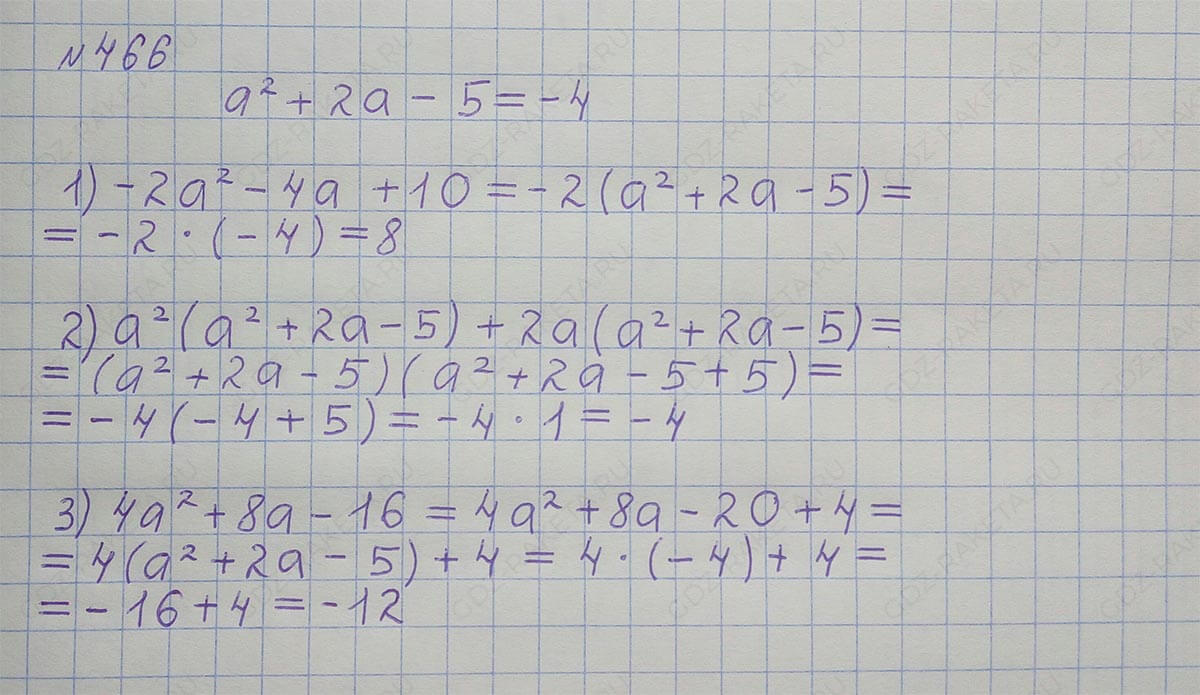 №466
a² + 2a - 5 = -4
1) -2a² - 4a + 10 = -2(a² + 2a - 5) =
= -2 · (-4) = 8
2) a²(a² + 2a - 5) + 2a(a² + 2a - 5) =
= (a² + 2a - 5)(a² + 2a - 5 + 5) =
= -4(-4 + 5) = -4 · 1 = -4
3) 4a² + 8a - 16 = 4a² + 8a - 20 + 4 =
= 4(a² + 2a - 5) + 4 = 4 · (-4) + 4 =
= -16 + 4 = -12
GDZ-RAKETA.RU